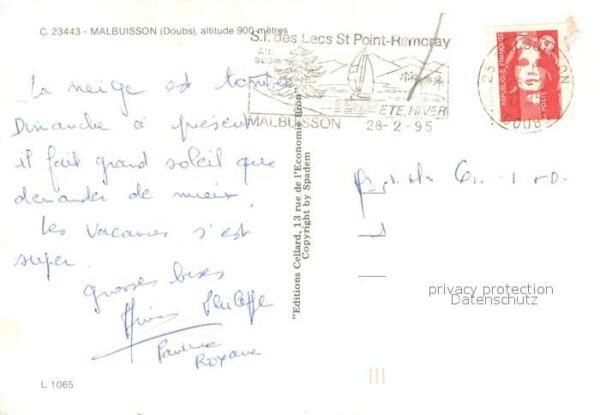 C. 23443 - MALBUISSON (Doubs), altitude 900 mètres
S.I. des Lacs St Point-Remoray
Alt.
900m
ETE, HIVER
MALBUISSON 28-2-95
25 DOUBS
REPUBLIQUE FRANÇAISE
POSTES
La neige est tombée
Dimanche à présent
il fait grand soleil que
demander de mieux.
Les vacances c'est
super.
grosses bises
Philippe
Pauline
Roxane
"Editions Cellard, 13 rue de l'Economie Bron"
Copyright by Spadem
privacy protection
Datenschutz
L 1065